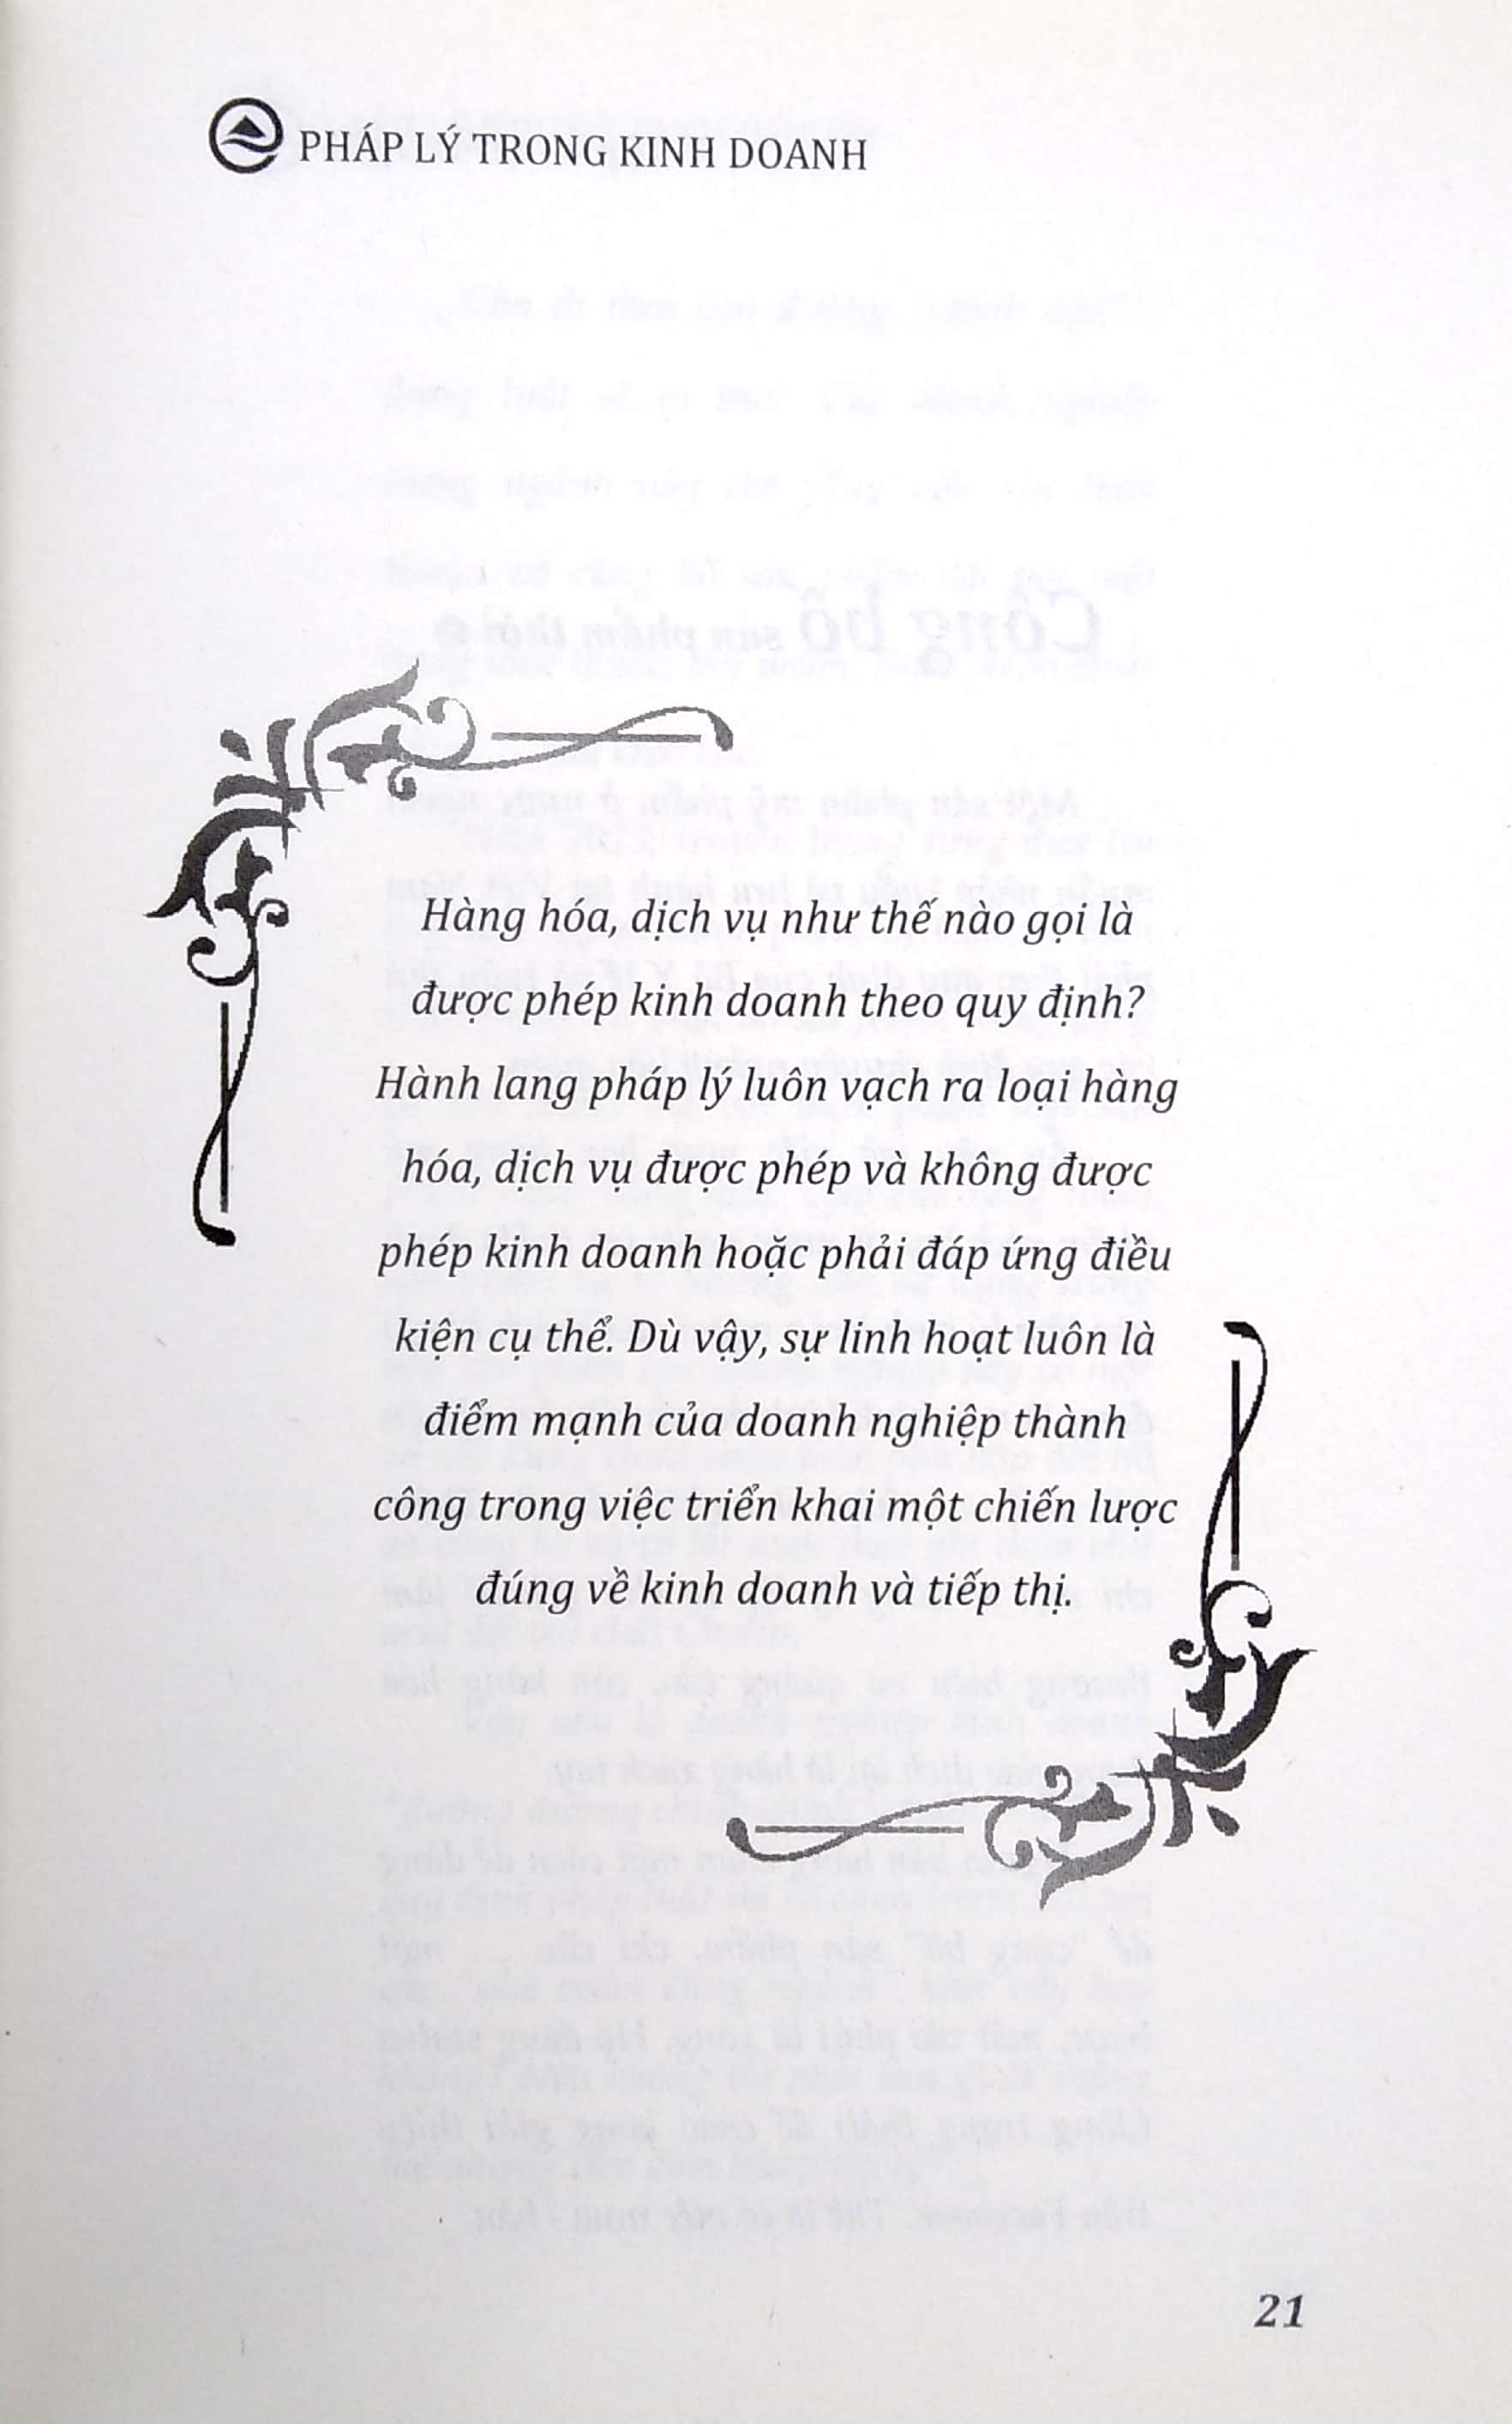 PHÁP LÝ TRONG KINH DOANH
Hàng hóa, dịch vụ như thế nào gọi là
được phép kinh doanh theo quy định?
Hành lang pháp lý luôn vạch ra loại hàng
hóa, dịch vụ được phép và không được
phép kinh doanh hoặc phải đáp ứng điều
kiện cụ thể. Dù vậy, sự linh hoạt luôn là
điểm mạnh của doanh nghiệp thành
công trong việc triển khai một chiến lược
đúng về kinh doanh và tiếp thị.
21